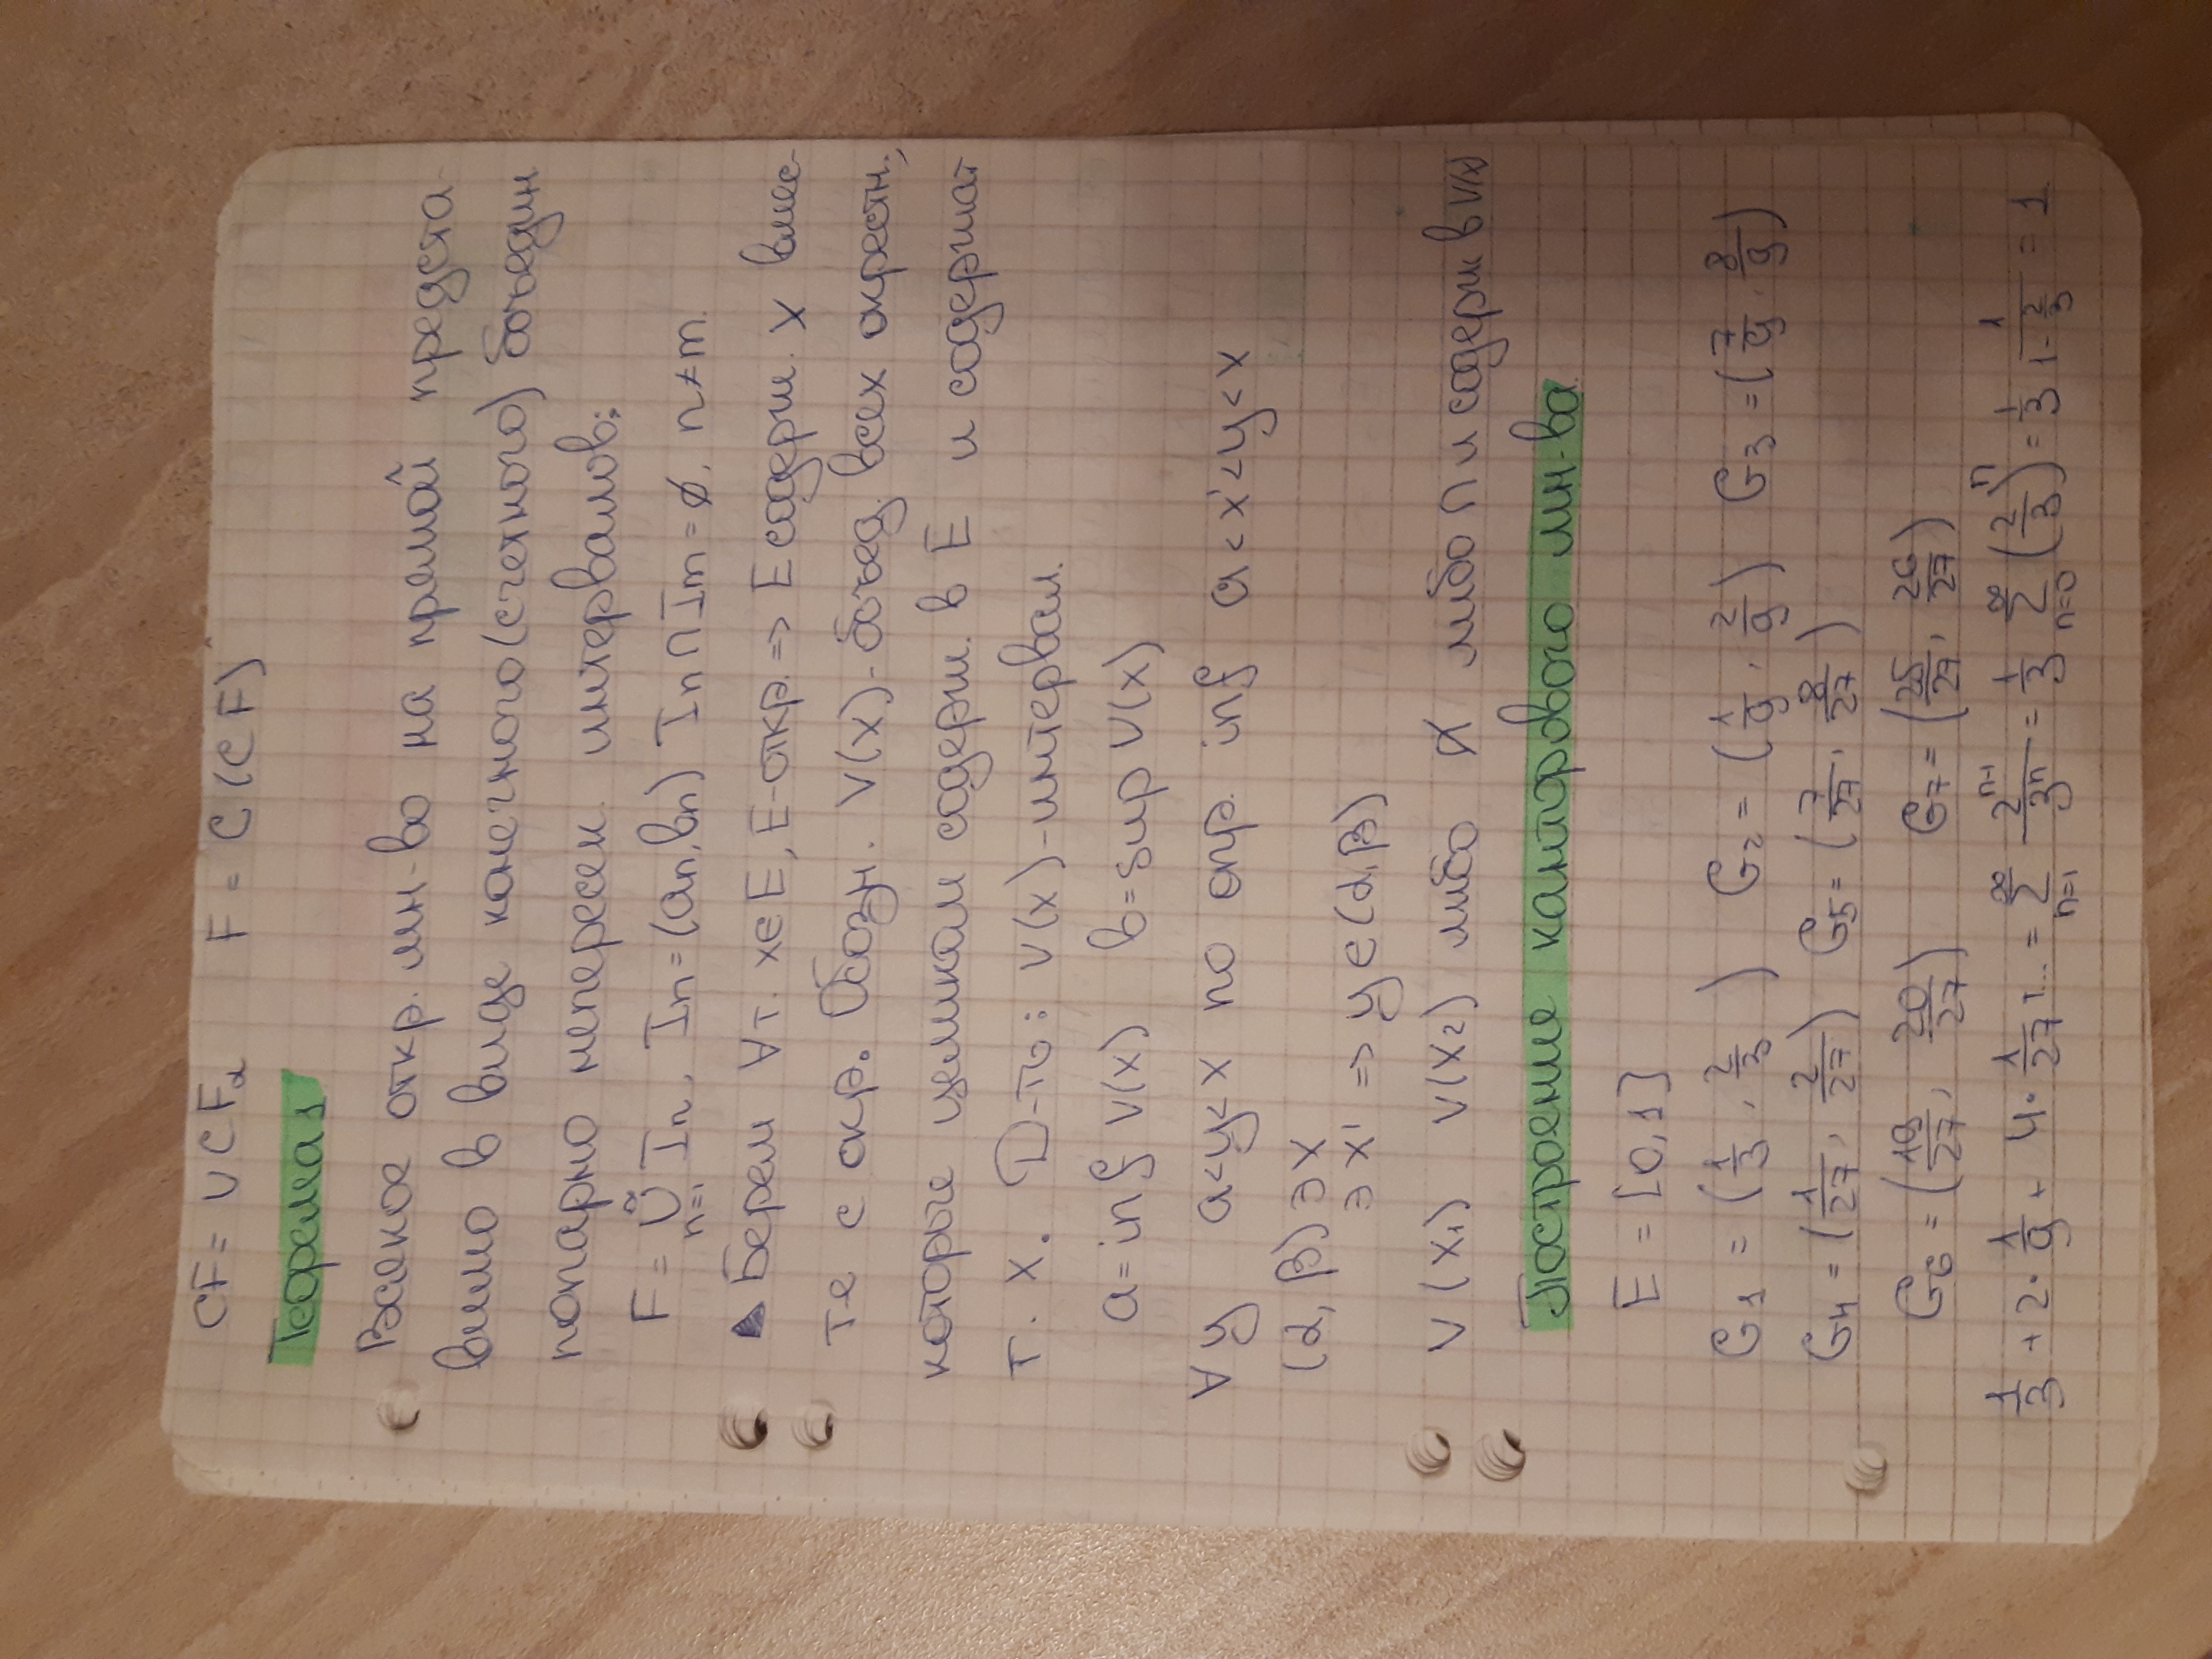 CF = ∪ CF_α   F = C(CF)
Теорема 1
Всякое откр. мн-во на прямой предста-
вимо в виде конечного (счетного) объедин
попарно непересек. интервалов:
F = ∪_{n=1}^∞ I_n, I_n = (a_n, b_n) I_n ∩ I_m = ∅, n ≠ m.
▲ Берем ∀ т. x ∈ E, E-откр. => E содерж. x вмес-
те с окр. Обозн. V(x)-объед. всех окрестн.,
которые целиком содерж. в E и содержат
т. x. Д-то: V(x)-интервал.
a = inf V(x)   b = sup V(x)
∀ y   a < y < x   по опр. inf   a < x' < y < x
(α, β) ∋ x
∋ x' => y ∈ (α, β)
V(x₁)   V(x₂)   либо ∅ либо ∩ и содерж в V(x)
Построение канторового мн-ва
E = [0,1]
G₁ = (1/3, 2/3)   G₂ = (1/9, 2/9)   G₃ = (7/9, 8/9)
G₄ = (1/27, 2/27)   G₅ = (7/27, 8/27)
G₆ = (19/27, 20/27)   G₇ = (25/27, 26/27)
1/3 + 2 · 1/9 + 4 · 1/27 + ... = ∑_{n=1}^∞ 2^{n-1}/3^n = 1/3 ∑_{n=0}^∞ (2/3)^n = 1/3 1/(1 - 2/3) = 1